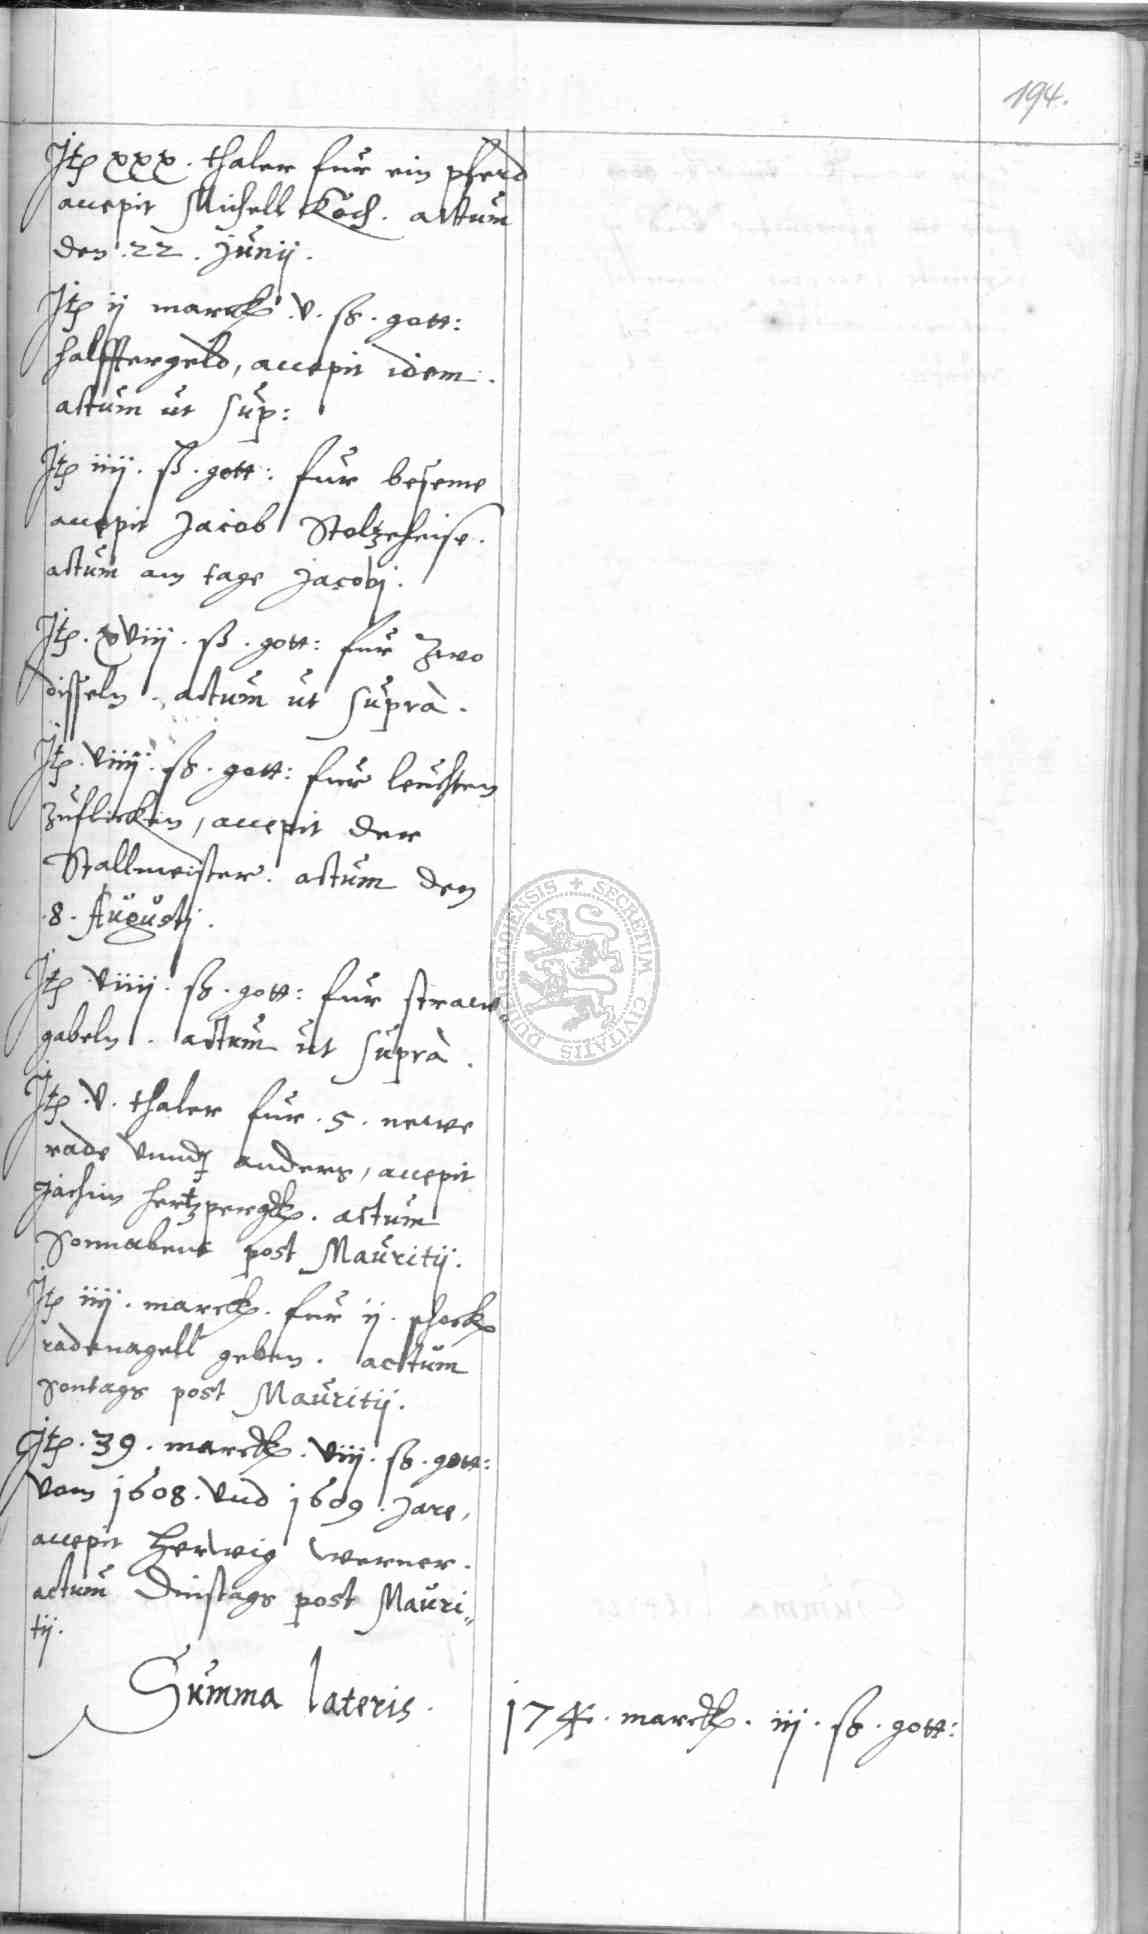 194.
Jtz xxx. thaler fur ein pferd
accepit Michell Koch. actum
den .22. Junij.
Jtz ij marck .v. ß. gott:
halfftergeld, accepit idem.
actum ut sup:
Jtz iiij. ß. gott: fur beseme
accepit Jacob Stoltzeheise.
actum am tage Jacobj.
Jtz. xviij. ß. gott: fur zwo
disseln. actum ut supra.
Jtz. viiij. ß. gott: fur leuchten
zuflicken, accepit der
Stallmeister. actum den
.8. Augustj.
Jtz. viiij. ß. gott: fur straw
gabeln. actum ut supra.
Jtz .v. thaler fur .5. newe
rade vnnd anders, accepit
Jachim Hertzpergk. actum
Sonnabent post Mauritij.
Jtz iiij. marck. fur ij. schock
radenagell geben. actum
Sontags post Mauritij.
Jtz. 39. marck. viij. ß. gott:
vom 1608. vnd 1609. Jare,
accepit Herwig Werner.
actum Dinstags post Mauri„
tij.
Summa lateris. 174. marck. iij. ß. gott:
DUDERSTADIENSIS + SECRETUM CIVITATIS